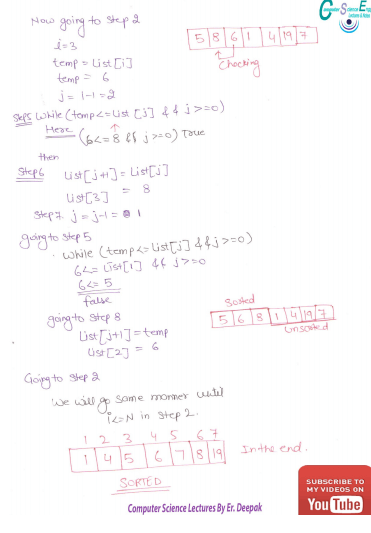 Now going to Step 2
i=3
temp = List[i]
temp = 6
j = i-1 = 2
Step5 while (temp<=List [j] && j>=0)
Here (6<=8 && j>=0) True
then
Step6 List[j+1] = List[j]
List[3] = 8
Step 7. j = j-1 = 1
going to Step 5
while (temp<=List[j] && j>=0)
6<= List[1] && j>=0
6<=5
false
going to Step 8
List[j+1] = temp
List[2] = 6
Going to Step 2
We will go same manner until
i<=N in Step 2.
5 8 6 1 4 19 7
Checking
Sorted
5 6 8 1 4 19 7
Unsorted
1 2 3 4 5 6 7
1 4 5 6 7 8 19 In the end.
SORTED
Computer Science Lectures By Er. Deepak
SUBSCRIBE TO
MY VIDEOS ON
YouTube